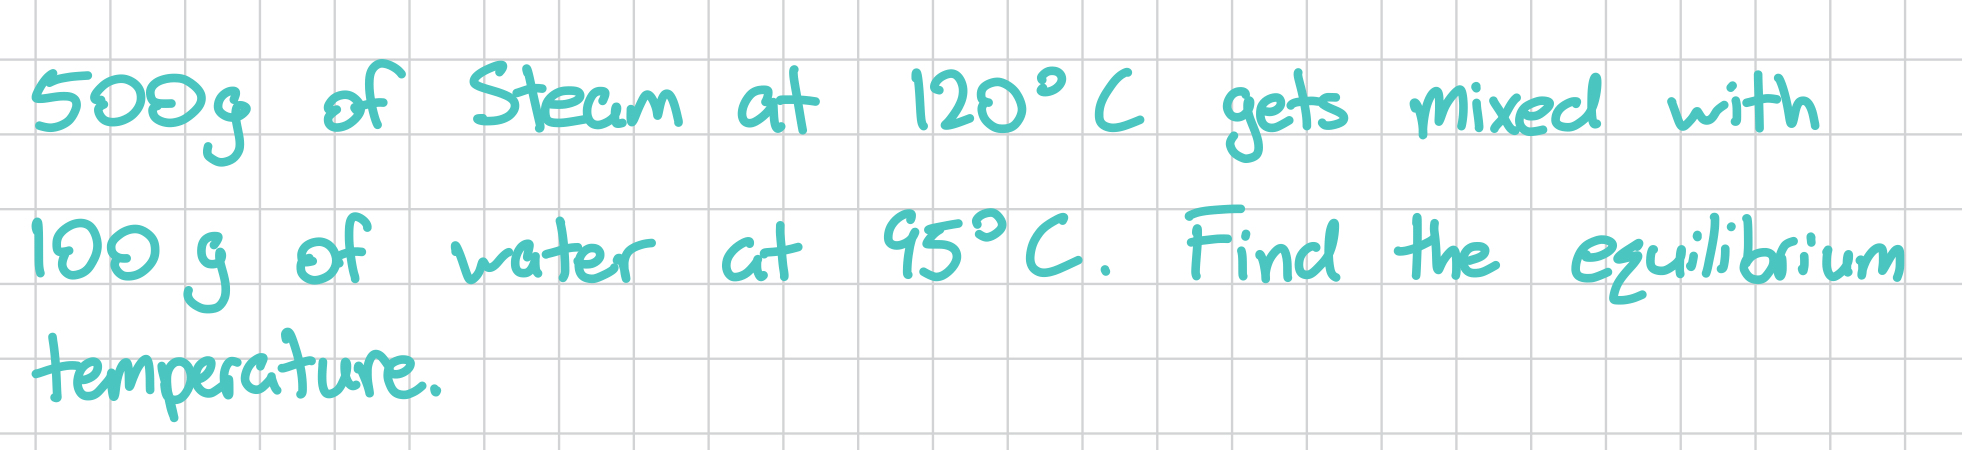 500g of Steam at 120°C gets mixed with
100 g of water at 95°C. Find the equilibrium
temperature.